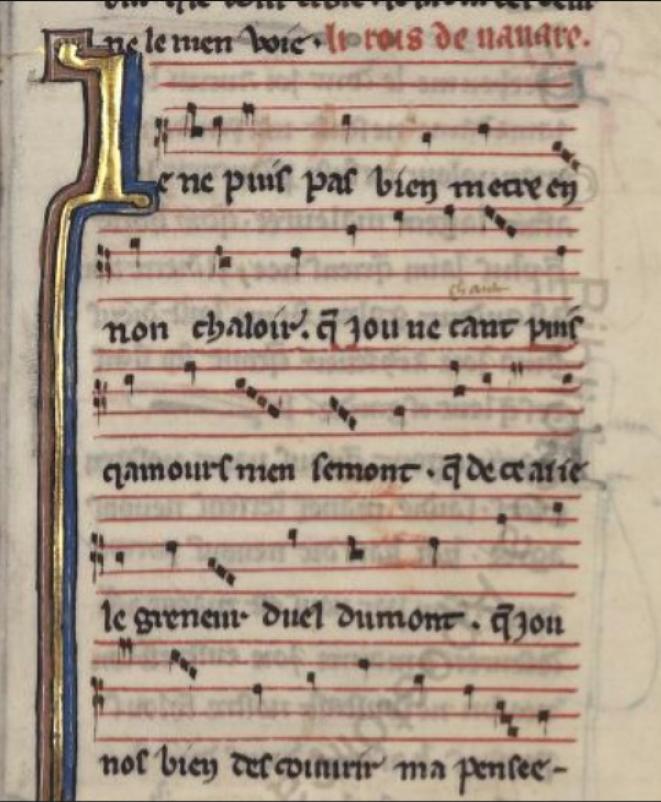 ne le men voie · li rois de navare.
Ie ne puis pas bien metre en
chant
non chaloir. q̃ jou ne cant puis
qamours men semont · q̃ de ce ai ie
le greneur duel dumont · q̃ jou
nos bien descouurir ma pensee -